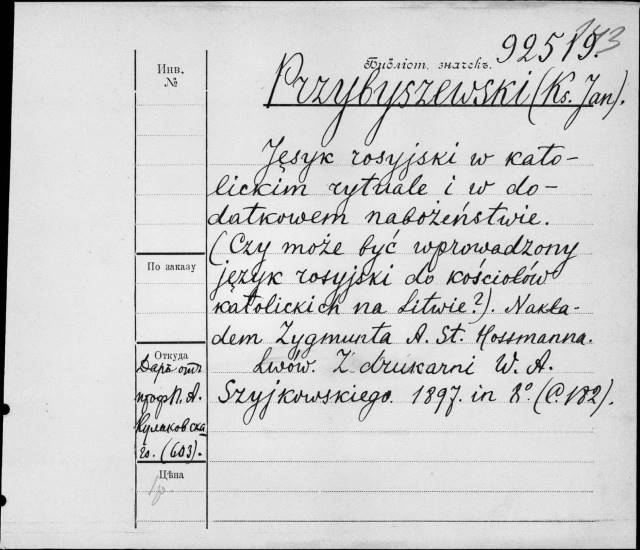 92519.
Инв.
№
Библіот. значекъ.
Przybyszewski (Ks. Jan).
Język rosyjski w kato-
lickim rytuale i w do-
datkowem nabożeństwie.
(Czy może być wprowadzony
По заказу
język rosyjski do kościołów
katolickich na Litwie?). Nakła-
dem Zygmunta A. St. Hossmanna.
Lwów. Z drukarni W. A.
Szyjkowskiego. 1897. in 8º. (C. 182).
Откуда
Даръ отъ
проф. П. А.
Кулаковска
го. (603).
Цѣна